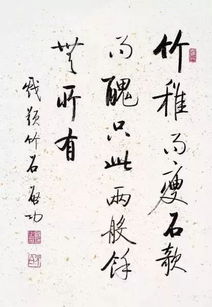 竹稚而瘦石欹
而醜只此兩般餘
無所有
戲題竹石 启功